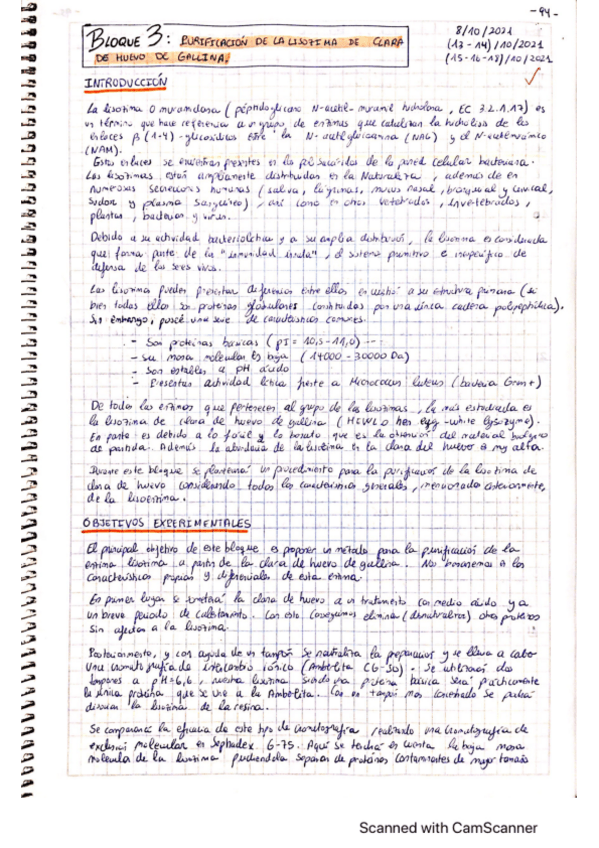 - 94 -
8/10/2021
(13-14)/10/2021
(15-16-18)/10/2021
BLOQUE 3: PURIFICACIÓN DE LA LISOZIMA DE CLARA
DE HUEVO DE GALLINA.
INTRODUCCIÓN
La lisozima o muramidasa (péptidoglicano N-acetil-muramil hidrolasa, EC 3.2.1.17) es
un término que hace referencia a un grupo de enzimas que catalizan la hidrólisis de los
enlaces β (1-4)-glicosídicos entre la N-acetilglucosamina (NAG) y el N-acetilmurámico
(NAM).
Estos enlaces se encuentran presentes en los polisacáridos de la pared celular bacteriana.
Las lisozimas están ampliamente distribuidas en la Naturaleza, además de en
numerosas secreciones humanas (saliva, lágrimas, mucus nasal, bronquial y cervical,
sudor y plasma sanguíneo), así como en otros vertebrados, invertebrados,
plantas, bacterias y virus.
Debido a su actividad bacteriolítica y a su amplia distribución, la lisozima es considerada
que forma parte de la "inmunidad innata", el sistema primitivo e inespecífico de
defensa de los seres vivos.
Las lisozimas pueden presentar diferencias entre ellas en cuanto a su estructura primaria (si
bien todas ellas son proteínas globulares constituidas por una única cadena polipeptídica).
Sin embargo, posee una serie de características comunes.
- Son proteínas básicas (pI = 10,5-11,0)
- Su masa molecular es baja (14000-30000 Da)
- Son estables a pH ácido
- Presentan actividad lítica frente a Micrococcus luteus (bacteria Gram+)
De todas las enzimas que pertenecen al grupo de las lisozimas, la más estudiada es
la lisozima de clara de huevo de gallina (HEWL o hen egg-white lysozyme).
En parte es debido a lo fácil y lo barato que es la obtención del material biológico
de partida. Además la abundancia de la lisozima en la clara del huevo es muy alta.
Durante este bloque se planteará un procedimiento para la purificación de la lisozima de
clara de huevo considerando todas las características generales, mencionadas anteriormente,
de la lisozima.
OBJETIVOS EXPERIMENTALES
El principal objetivo de este bloque es proponer un método para la purificación de la
enzima lisozima a partir de la clara de huevo de gallina. Nos basaremos en las
características propias y diferenciales de esta enzima.
En primer lugar se someterá la clara de huevo a un tratamiento con medio ácido y a
un breve periodo de calentamiento. Con esto conseguimos eliminar (desnaturalizar) otras proteínas
sin afectar a la lisozima.
Posteriormente, y con ayuda de un tampón se neutraliza la preparación y se lleva a cabo
una cromatografía de intercambio iónico (Amberlita CG-50). Se utilizarán dos
tampones a pH=6,6, nuestra lisozima siendo una proteína básica será prácticamente
la única proteína que se une a la Amberlita. Con un tampón más concentrado se podrá
disociar la lisozima de la resina.
Se comparará la eficacia de este tipo de cromatografía realizando una cromatografía de
exclusión molecular en Sephadex G-75. Aquí se tendrá en cuenta la baja masa
molecular de la lisozima pudiéndola separar de proteínas contaminantes de mayor tamaño
Scanned with CamScanner